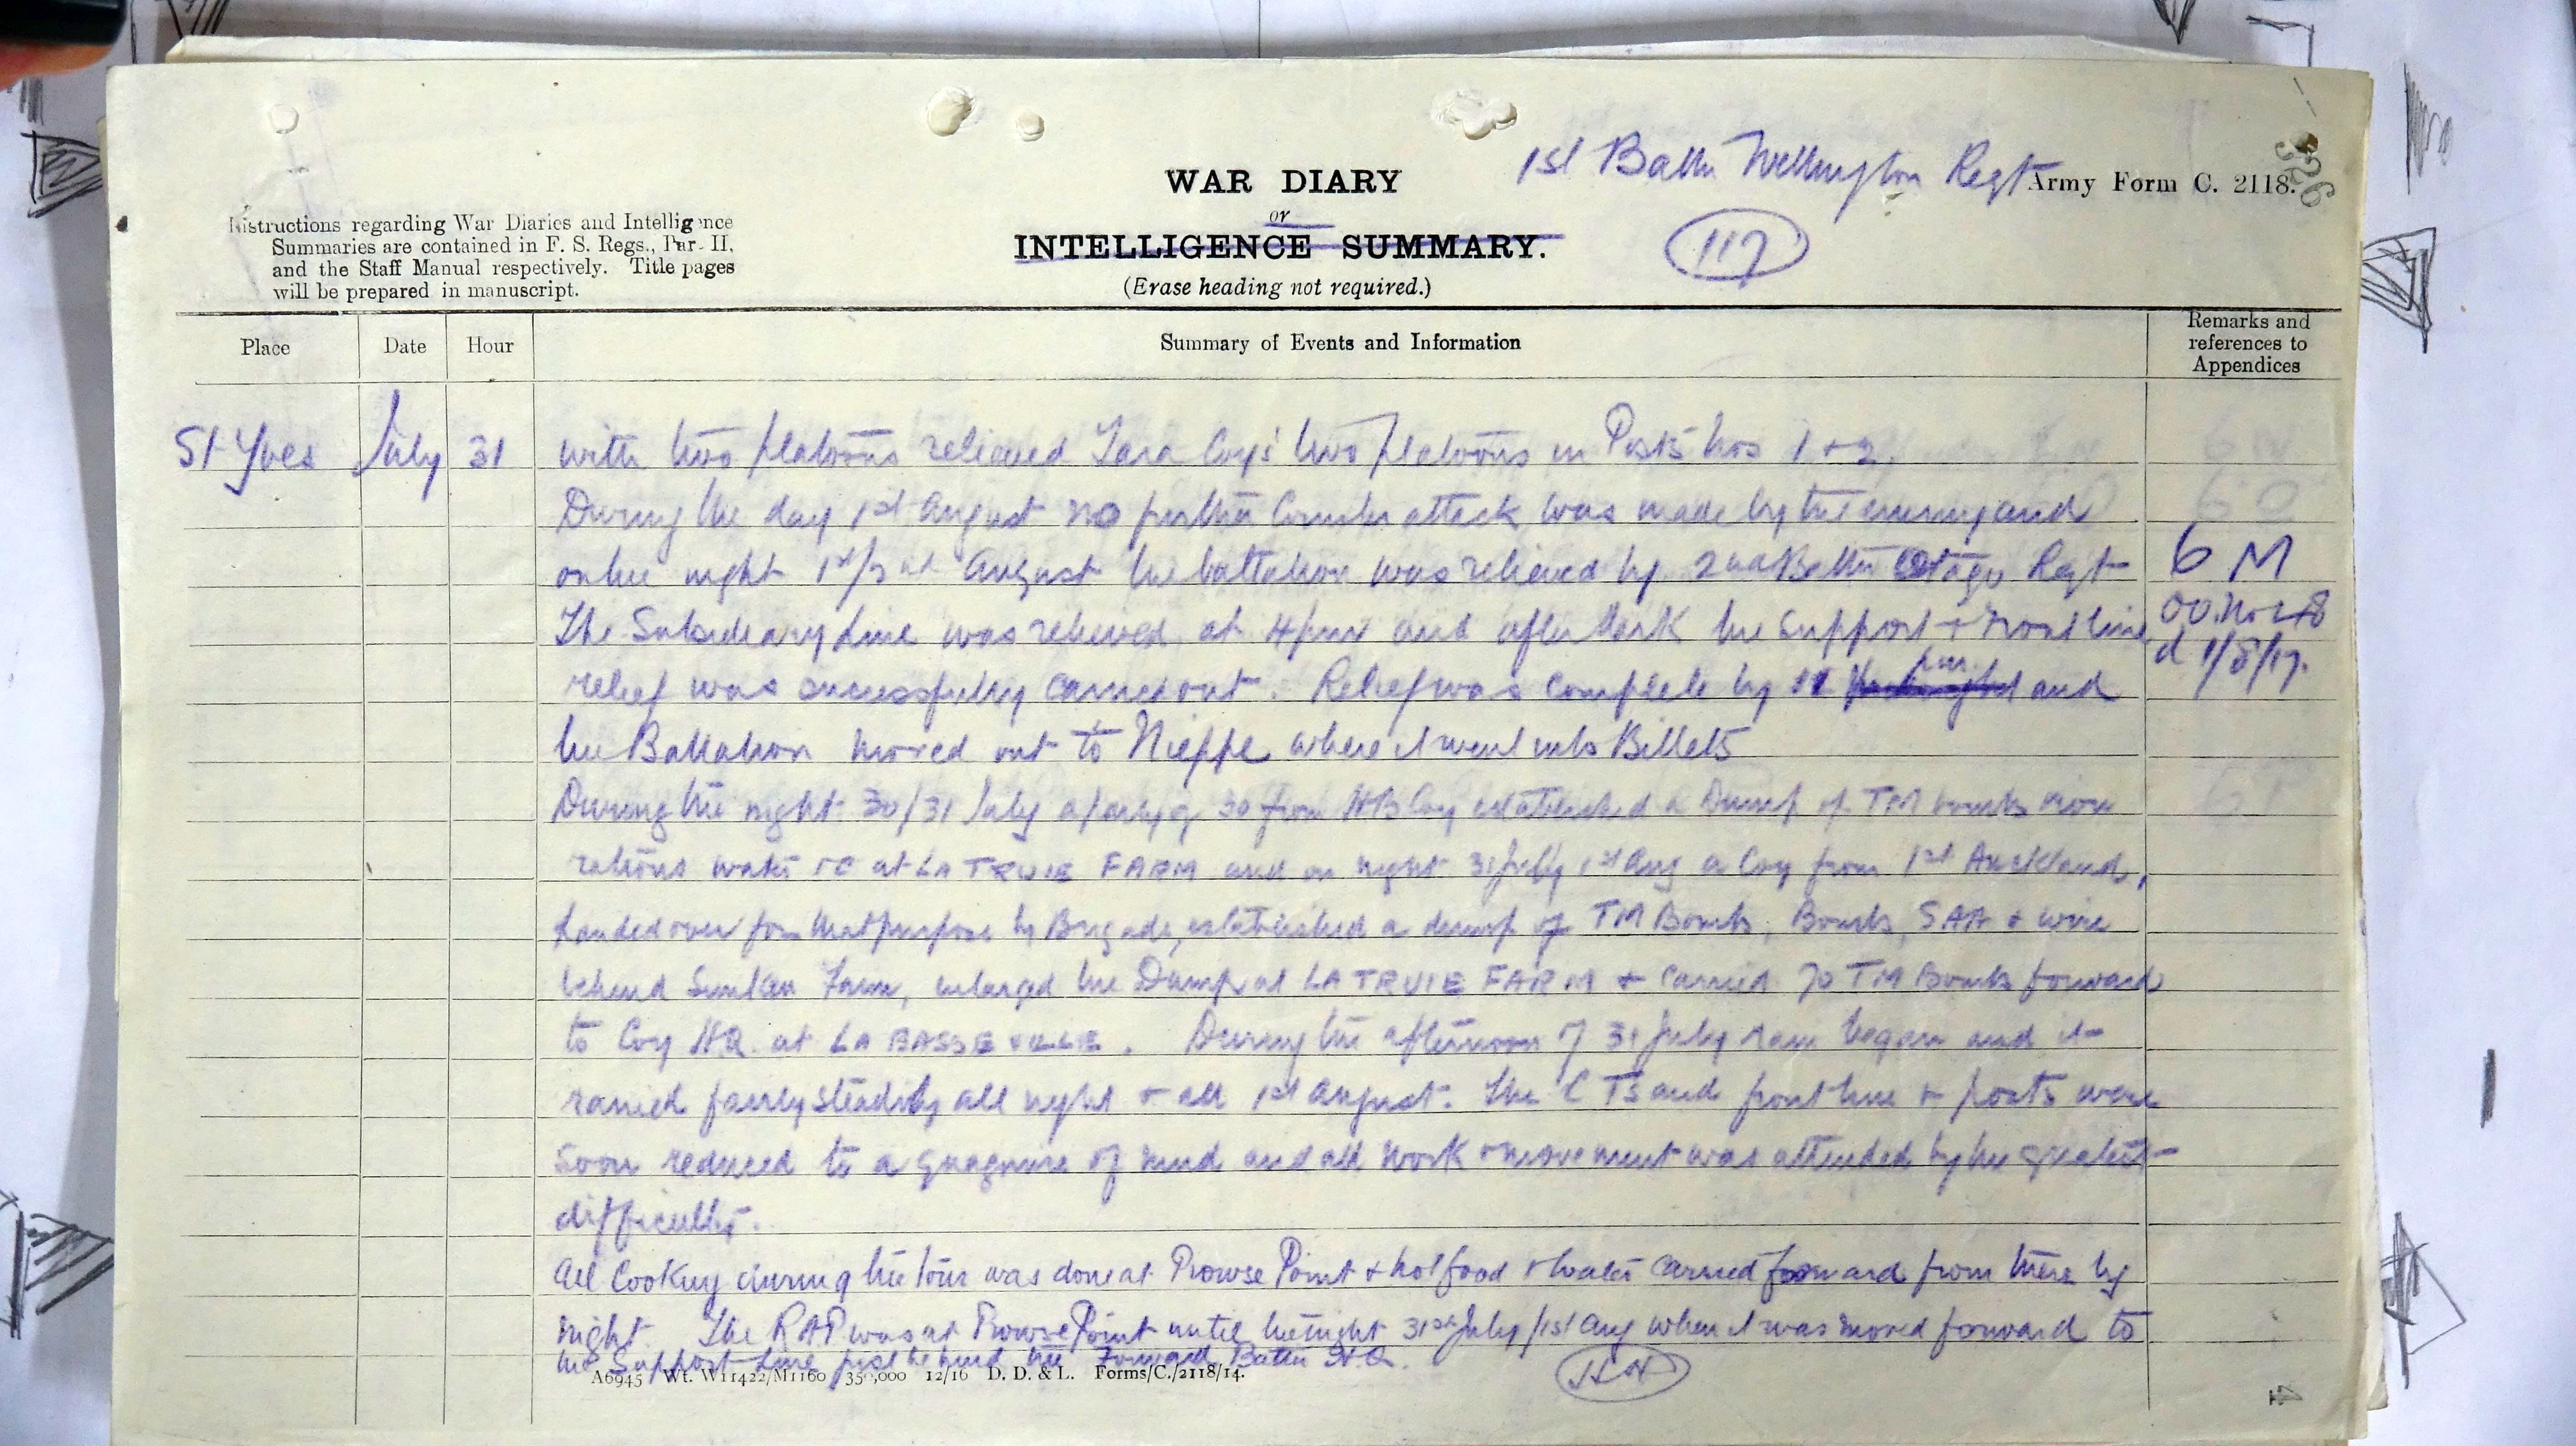 1st Battn Wellington Regt
WAR DIARY
or
INTELLIGENCE SUMMARY.
(Erase heading not required.)
Army Form C. 2118.
326
117
Instructions regarding War Diaries and Intelligence
Summaries are contained in F. S. Regs., Part II,
and the Staff Manual respectively. Title pages
will be prepared in manuscript.
Place Date Hour Summary of Events and Information Remarks and references to Appendices
St Yves July 31 with two platoons relieved Tara Coy's two platoons in Posts Nos 1 + 2.
During the day 1st August no further Counter attack was made by the enemy and
on the night 1st/2nd August the battalion was relieved by 2nd Battn Otago Regt
6 M
The Subsidiary Line was relieved at 4pm and after dark the Support + Front line
OO. No 48
relief was successfully carried out. Relief was complete by 11 pm. and
d 1/8/17.
the Battalion moved out to Nieppe where it went into Billets
During the night 30/31 July a party of 30 from HB Coy established a Dump of TM bombs
rations water at LA TRUIE FARM and on night 31 July 1st Aug a Coy from 1st Auckland,
handed over for that purpose by Brigade, established a dump of TM Bombs, Bombs, SAA + wire
behind Sunken Farm, enlarged the Dump at LA TRUIE FARM + carried 70 TM Bombs forward
to Coy HQ. at LA BASSE VILLE. During the afternoon of 31 July rain began and it
rained fairly steadily all night + all 1st August. The C Ts and front line + posts were
soon reduced to a quagmire of mud and all work + movement was attended by the greatest
difficulty.
All Cooking during the tour was done at Prowse Point + hot food + water carried forward from there by
night. The RAP was at Prowse Point until the night 31st July/1st Aug when it was moved forward to
the Support Line just behind the Forward Battn H.Q.
A6945 Wt. W11422/M1160 350,000 12/16 D. D. & L. Forms/C./2118/14.